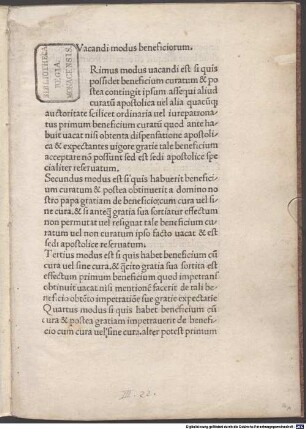 Vacandi modus beneficiorum.
BIBLIOTHECA
REGIA
MONACENSIS.
Rimus modus uacandi est si quis
possidet beneficium curatum & po
stea contingit ipsum assequi aliud
curatū apostolica uel alia quacūq;
auctoritate scilicet ordinaria uel iurepatrona
tus primum beneficium curatū quod ante ha
buit uacat nisi obtenta dispensatione apostoli
ca & expectantes uigore gratie tale beneficium
acceptare nō possunt sed est sedi apostolice spe
cialiter reseruatum.
Secundus modus est si quis habuerit benefici
um curatum & postea obtinuerit a domino no
stro papa gratiam de beneficio cum cura uel si
ne cura, & si anteq̄ gratia sua sortiatur effectum
non permutat uel resignat tale beneficium cu
ratum uel non curatum ipso facto uacat & est
sedi apostolice reseruatum.
Tertius modus est si quis habet beneficium cū
cura uel sine cura, & q̄cito gratia sua sortita est
effectum primum beneficium quod impetrans
obtinuit uacat nisi mentionē facerit de tali be
neficio obtēto impetratiōe sue gratie expectatie
Quartus modus si quis habet beneficium cū
cura & postea gratiam impetrauerit de benefi
cio cum cura uel sine cura, alter potest primum